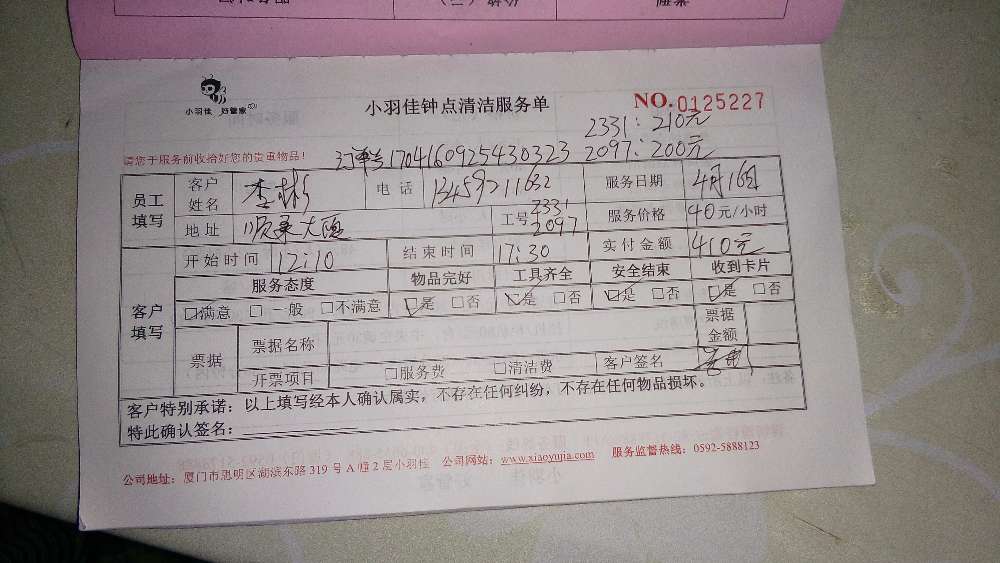 小羽佳 好管家
小羽佳钟点清洁服务单
NO.0125227
2331:210元
请您于服务前收给好您的贵重物品! 订单号170416092543O323 2097:200元
员工填写 客户姓名 李彬 电话 13459211632 服务日期 4月16日
地址 顺承大厦 工号 2331 2097 服务价格 40元/小时
客户填写 开始时间 12:10 结束时间 17:30 实付金额 410元
服务态度 物品完好 工具齐全 安全结束 收到卡片
☑满意 □一般 □不满意 ☑是 □否 ☑是 □否 ☑是 □否 ☑是 □否
票据 票据名称 票据金额
开票项目 □服务费 □清洁费 客户签名
客户特别承诺:以上填写经本人确认属实,不存在任何纠纷,不存在任何物品损坏。
特此确认签名:
公司地址:厦门市思明区湖滨东路319号A幢2层小羽佳 公司网站:www.xiaoyujia.com 服务监督热线:0592-5888123